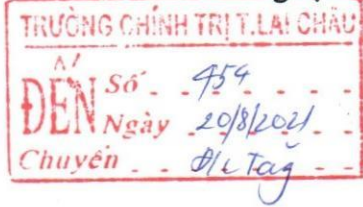 TRƯỜNG CHÍNH TRỊ T.LAI CHÂU
ĐẾN
Số 454
Ngày 20/8/2021
Chuyển Đ/c